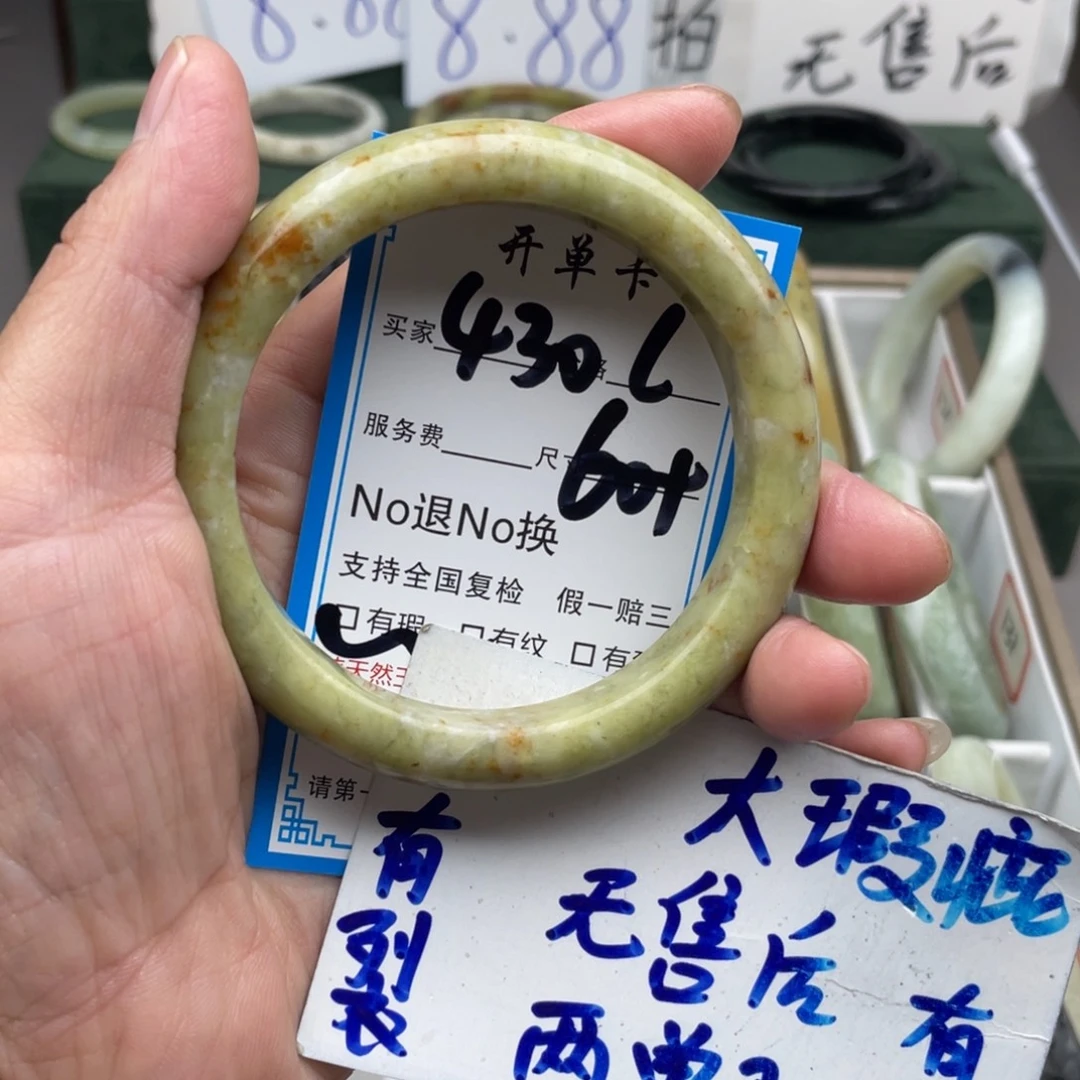 8.88
8.88
拍
无售后
开单卡
买家 430 L
服务费 尺 60+
No退No换
支持全国复检 假一赔三
口有瑕 口有纹 口有
天然
请第一
有裂
大瑕疵
无售后 有
两单